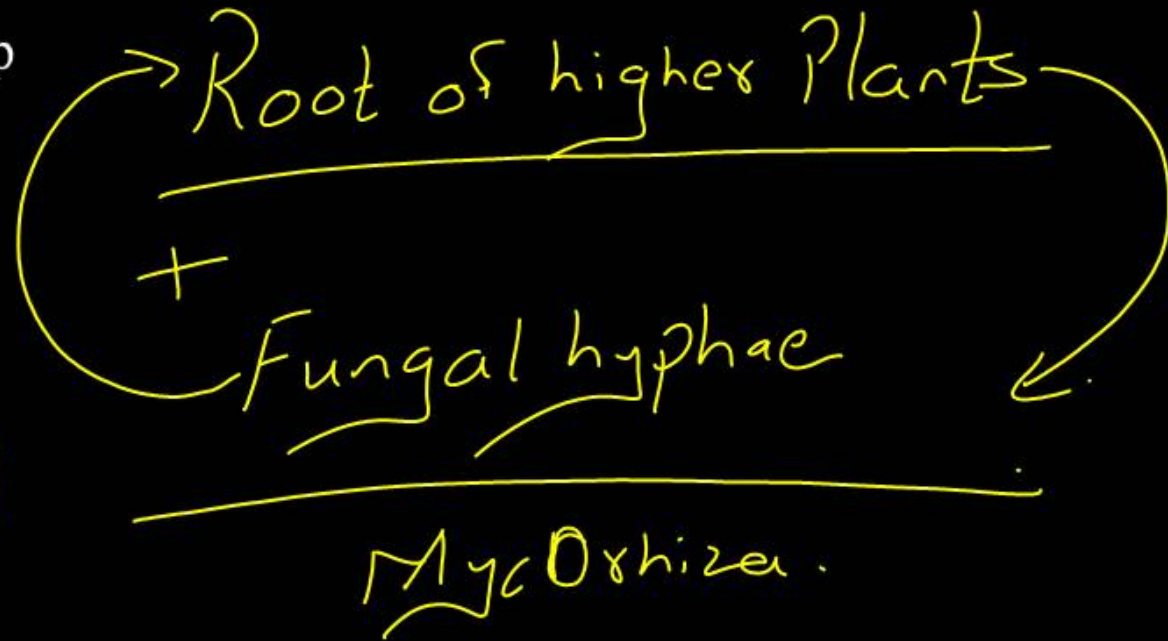 Root of higher Plants
+
Fungal hyphae
MycOrhiza.